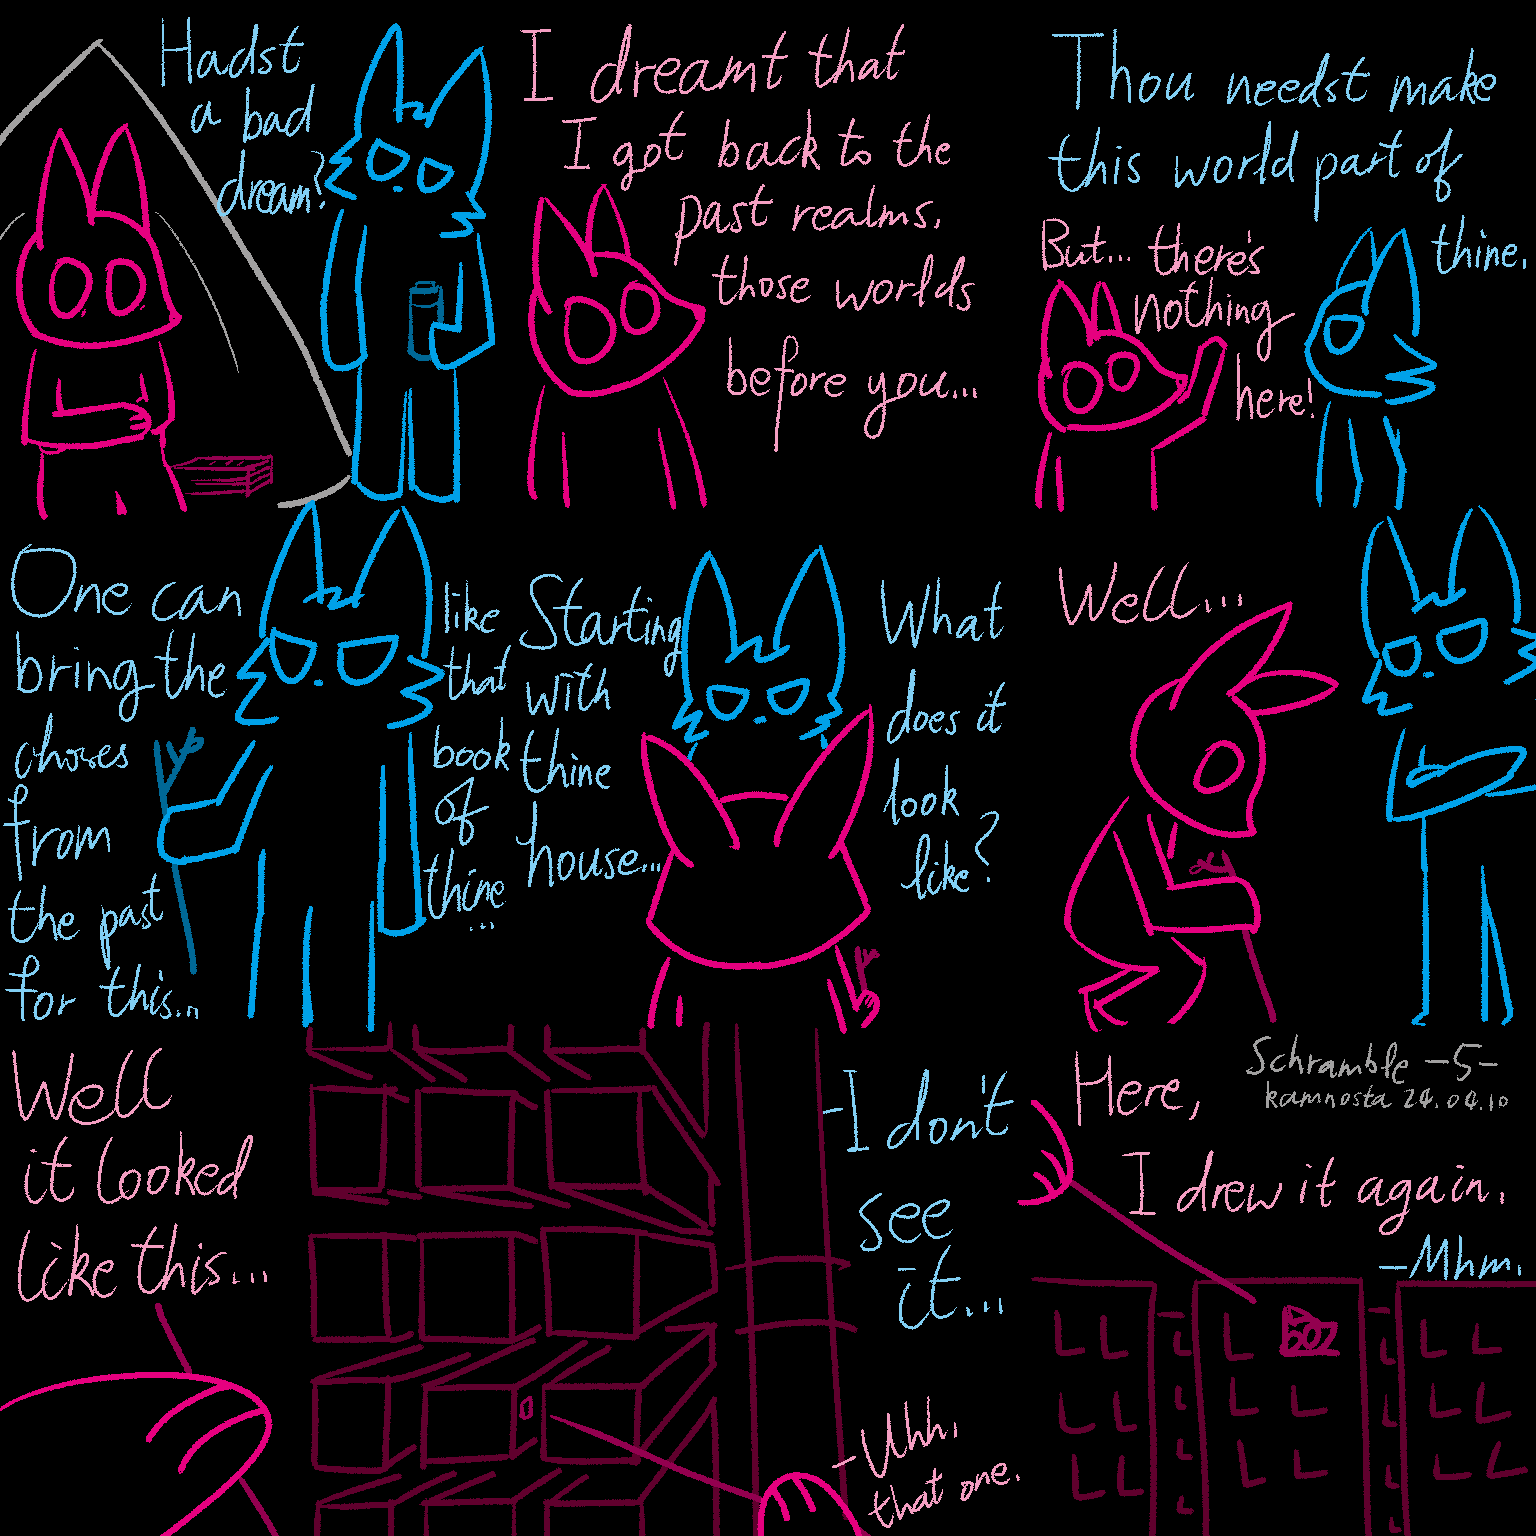 Hadst
a bad
dream?
I dreamt that
I got back to the
past realms,
those worlds
before you...
Thou needst make
this world part of
thine.
But... there's
nothing
here!
One can
bring the
chores
from
the past
for this...
like
that
book
of
thine
...
Starting
with
thine
house...
What
does it
look
like?
Well...
Well
it looked
like this...
-I don't
see
it...
-Uhh,
that one.
Schramble -5-
kamnosta 24.04.10
Here,
I drew it again.
-Mhm.
502